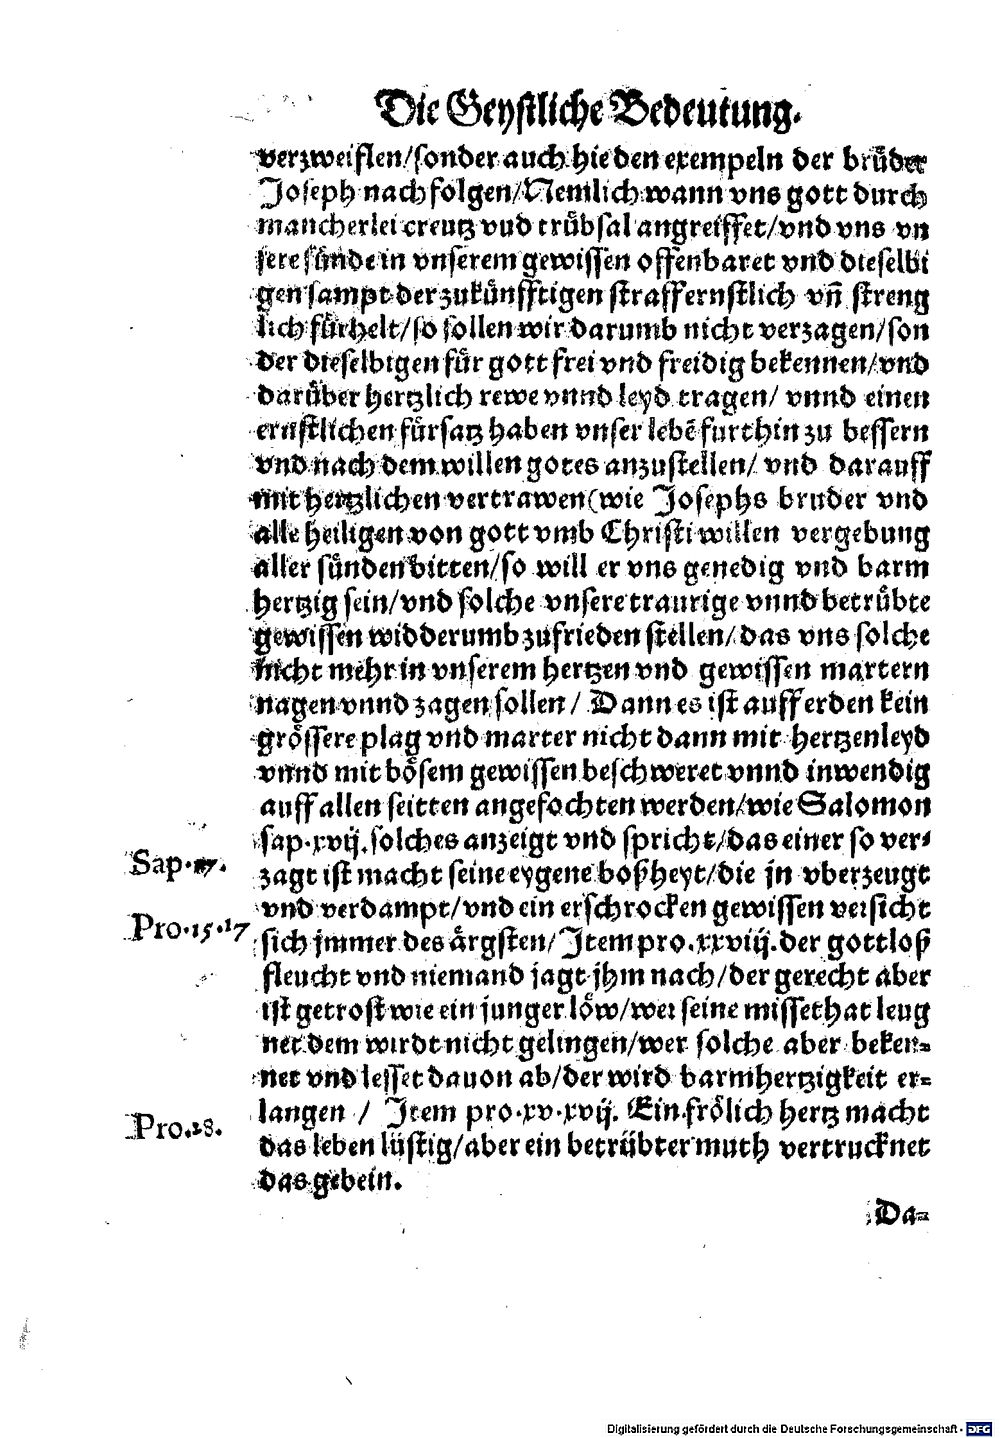 Die Geystliche Bedeutung.
verzweiflen/sonder auch hie den exempeln der brüder
Joseph nachfolgen/Nemlich wann vns gott durch
mancherlei creutz vnd trübsal angreiffet/vnd vns vn
sere sünde in vnserem gewissen offenbaret vnd dieselbi
gen sampt der zukünfftigen straff ernstlich vñ streng
lich fürhelt/so sollen wir darumb nicht verzagen/son
der dieselbigen für gott frei vnd freidig bekennen/vnd
darüber hertzlich rewe vnnd leyd tragen/ vnnd einen
ernstlichen fürsatz haben vnser lebē furthin zu bessern
vnd nach dem willen gotes anzustellen/ vnd darauff
mit hertzlichen vertrawen(wie Josephs bruder vnd
alle heiligen von gott vmb Christi willen vergebung
aller sünden bitten/so will er vns genedig vnd barm
hertzig sein/vnd solche vnsere traurige vnnd betrübte
gewissen widderumb zufrieden stellen/das vns solche
nicht mehr in vnserem hertzen vnd gewissen martern
nagen vnnd zagen sollen/ Dann es ist auff erden kein
grössere plag vnd marter nicht dann mit hertzenleyd
vnnd mit bösem gewissen beschweret vnnd inwendig
auff allen seitten angefochten werden/wie Salomon
sap.xvij.solches anzeigt vnd spricht/das einer so ver⸗
Sap.17.
zagt ist macht seine eygene boßheyt/die jn vberzeugt
vnd verdampt/vnd ein erschrocken gewissen versicht
Pro.15.17
sich jmmer des ärgsten/Item pro.xxviij.der gottloß
fleucht vnd niemand jagt jhm nach/der gerecht aber
ist getrost wie ein junger löw/wer seine missethat leug
net dem wirdt nicht gelingen/wer solche aber beken⸗
net vnd lesset dauon ab/der wird barmhertzigkeit er⸗
langen / Item pro.xv.xvij. Ein frölich hertz macht
Pro.28.
das leben lüstig/aber ein betrübter muth vertrucknet
das gebein.
Da⸗
Digitalisierung gefördert durch die Deutsche Forschungsgemeinschaft - DFG